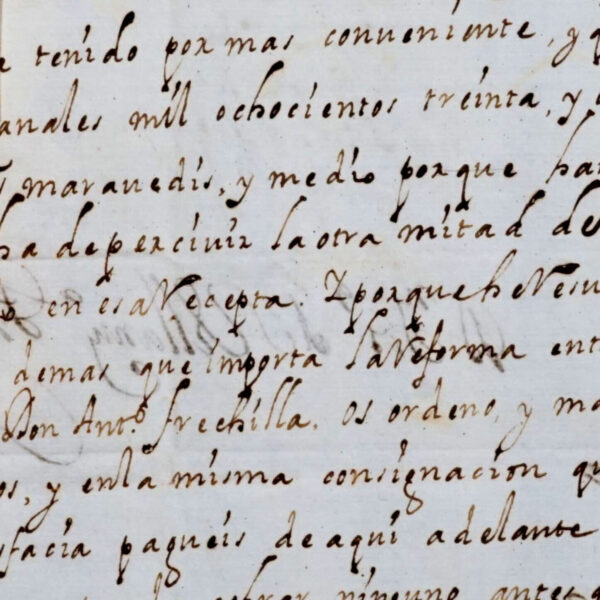 e tenido por mas conveniente, y q
anales mil ochocientos treinta, y
s maravedis, y medio porque ha
ha de percivir la otra mitad de
en esa Recepta. Y porque he Resu
demas que importa la Reforma ent
Don Ant.º frechilla. Os ordeno, y ma
os, y en la misma consignacion qu
sfacia pagueis de aqui adelante
cobrar ninguno antes